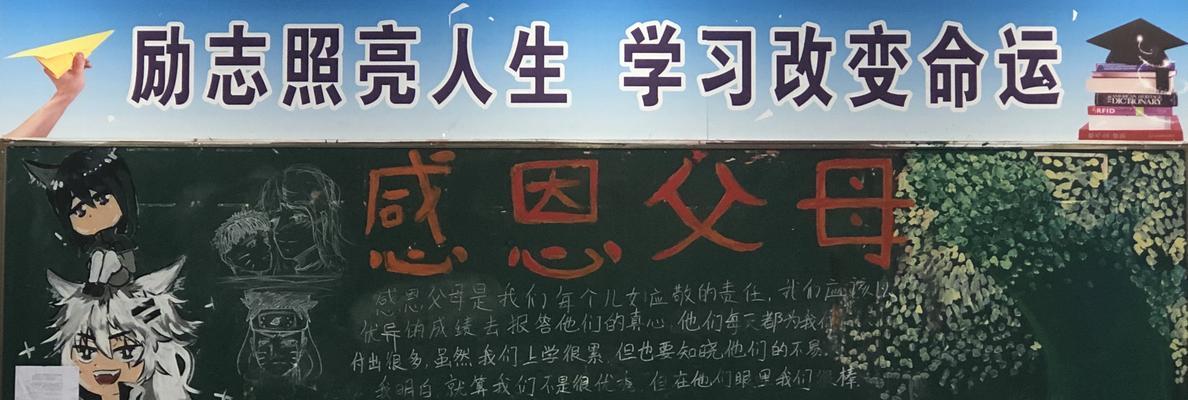 励志照亮人生 学习改变命运
AMERICAN HERITAGE
DICTIONARY
RFID
感恩父母
感恩父母是我们每个儿女应敬的责任,我们应该以
优异的成绩去报答他们的真心,他们每天都为我们
付出很多,虽然我们上学很累,但也要知晓他们的不易.
我明白,就算我们不是很优秀,但在他们眼里我们很棒.